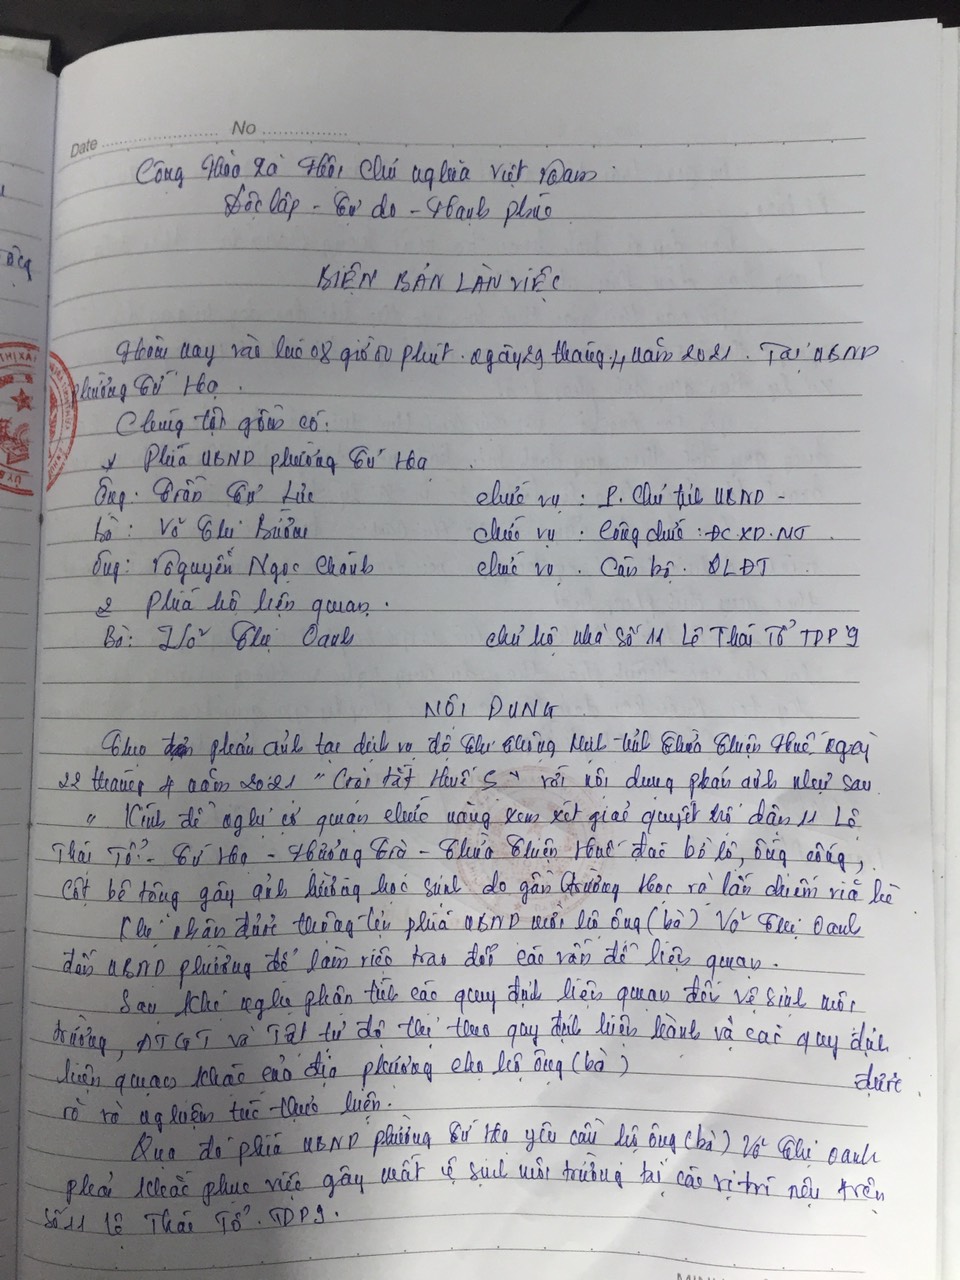 Date No
Cộng Hòa Xã Hội Chủ nghĩa Việt Nam
Độc lập - Tự do - Hạnh phúc
BIÊN BẢN LÀM VIỆC
Hôm nay vào lúc 08 giờ 00 phút. ngày 29 tháng 4 năm 2021. Tại UBND
phường Tứ Hạ.
Chúng tôi gồm có:
Phía UBND phường Tứ Hạ
Ông: Trần Tự Lực chức vụ: P. Chủ tịch UBND -
Bà: Võ Thị chức vụ: Công chức: ĐC.XD.NT
Ông: Nguyễn Ngọc Chánh chức vụ. Cán bộ. QLĐT
2 Phía hộ liên quan.
Bà: Võ Thị Oanh chủ hộ nhà số 11 Lê Thái Tổ TDP 9
NỘI DUNG
Theo phản ánh tại dịch vụ đô thị thông minh tỉnh Thừa Thiên Huế ngày
22 tháng 4 năm 2021 " Huế S" với nội dung phản ánh như sau
" Kính đề nghị cơ quan chức năng xem xét giải quyết hộ dân 11 Lê
Thái Tổ - Tứ Hạ - Hương Trà - Thừa Thiên Huế đặc bờ lô, ống cống,
cột bê tông gây ảnh hưởng học sinh do gần trường học và lấn chiếm vỉa hè
nhận được thông tin phía UBND mời hộ ông (bà) Võ Thị Oanh
đến UBND phường để làm việc trao đổi các vấn đề liên quan.
Sau khi nghe phân tích các quy định liên quan đến vệ sinh môi
trường, ATGT và Trật tự đô thị theo quy định hiện hành và các quy định
hiện quan khác của địa phương cho hộ ông (bà) được
rõ và nghiêm túc thực hiện.
Qua đó phía UBND phường Tứ Hạ yêu cầu hộ ông (bà) Võ Thị Oanh
phải khắc phục việc gây mất vệ sinh môi trường tại các vị trí nêu trên
số 11 Lê Thái Tổ. TDP9.